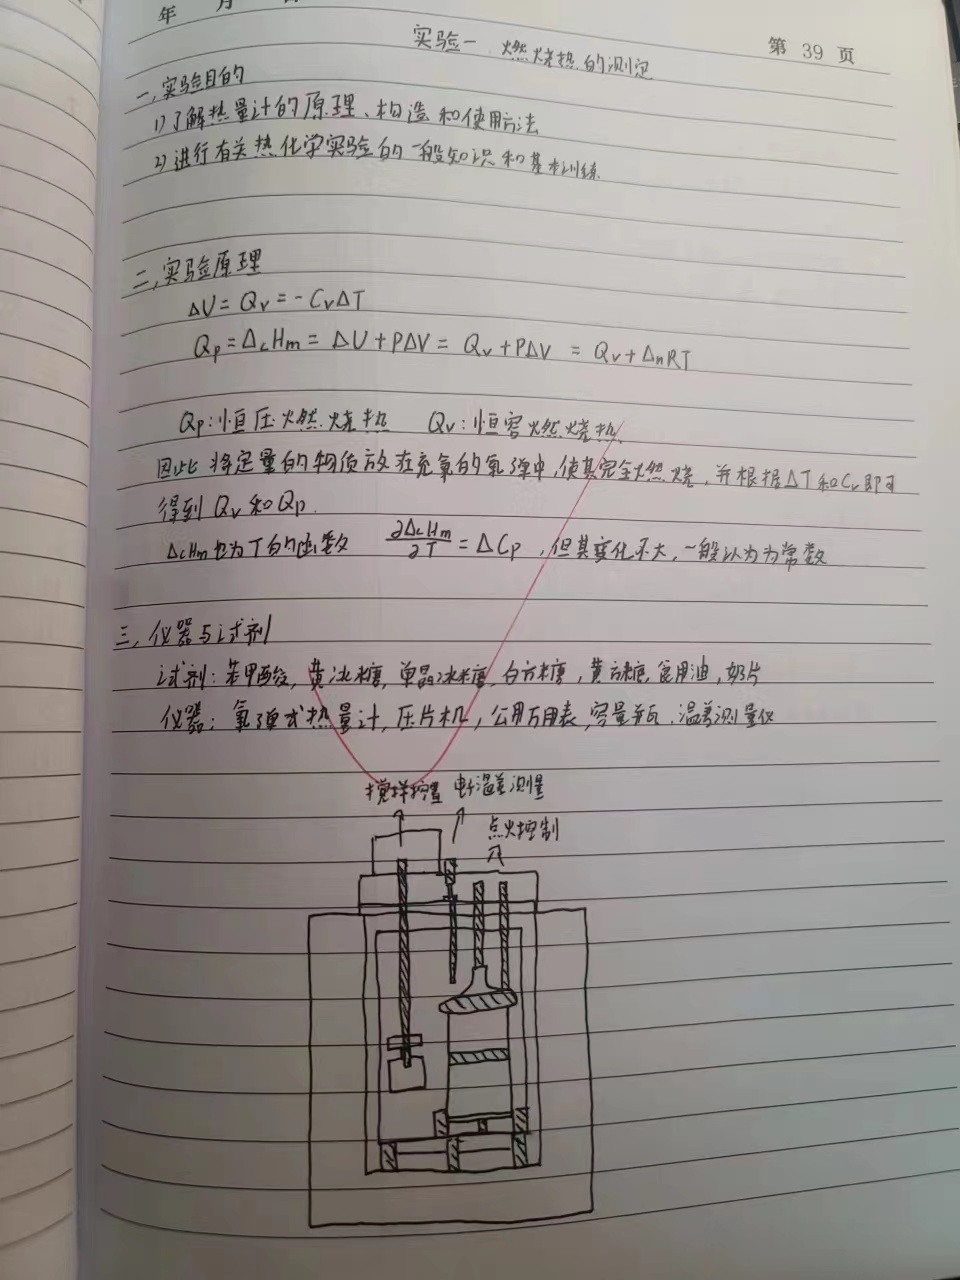 年 月 日
实验一 燃烧热的测定 第 39 页
一,实验目的
1)了解热量计的原理、构造和使用方法
2)进行有关热化学实验的一般知识和基本训练
二,实验原理
ΔU = Qv = -CvΔT
Qp = ΔcHm = ΔU + PΔV = Qv + PΔV = Qv + ΔnRT
Qp:恒压燃烧热 Qv:恒容燃烧热
因此将定量的物质放在充氧的氧弹中,使其完全燃烧,并根据ΔT和Cv即可
得到Qv和Qp.
ΔcHm也为T的函数 ∂ΔcHm/∂T = ΔCp,但其变化不大,一般认为为常数
三,仪器与试剂
试剂:苯甲酸,黄冰糖,单晶冰糖,白方糖,黄方糖,食用油,奶片
仪器:氧弹式热量计,压片机,公用万用表,容量瓶,温差测量仪
搅拌装置 电子温差测量
点火控制